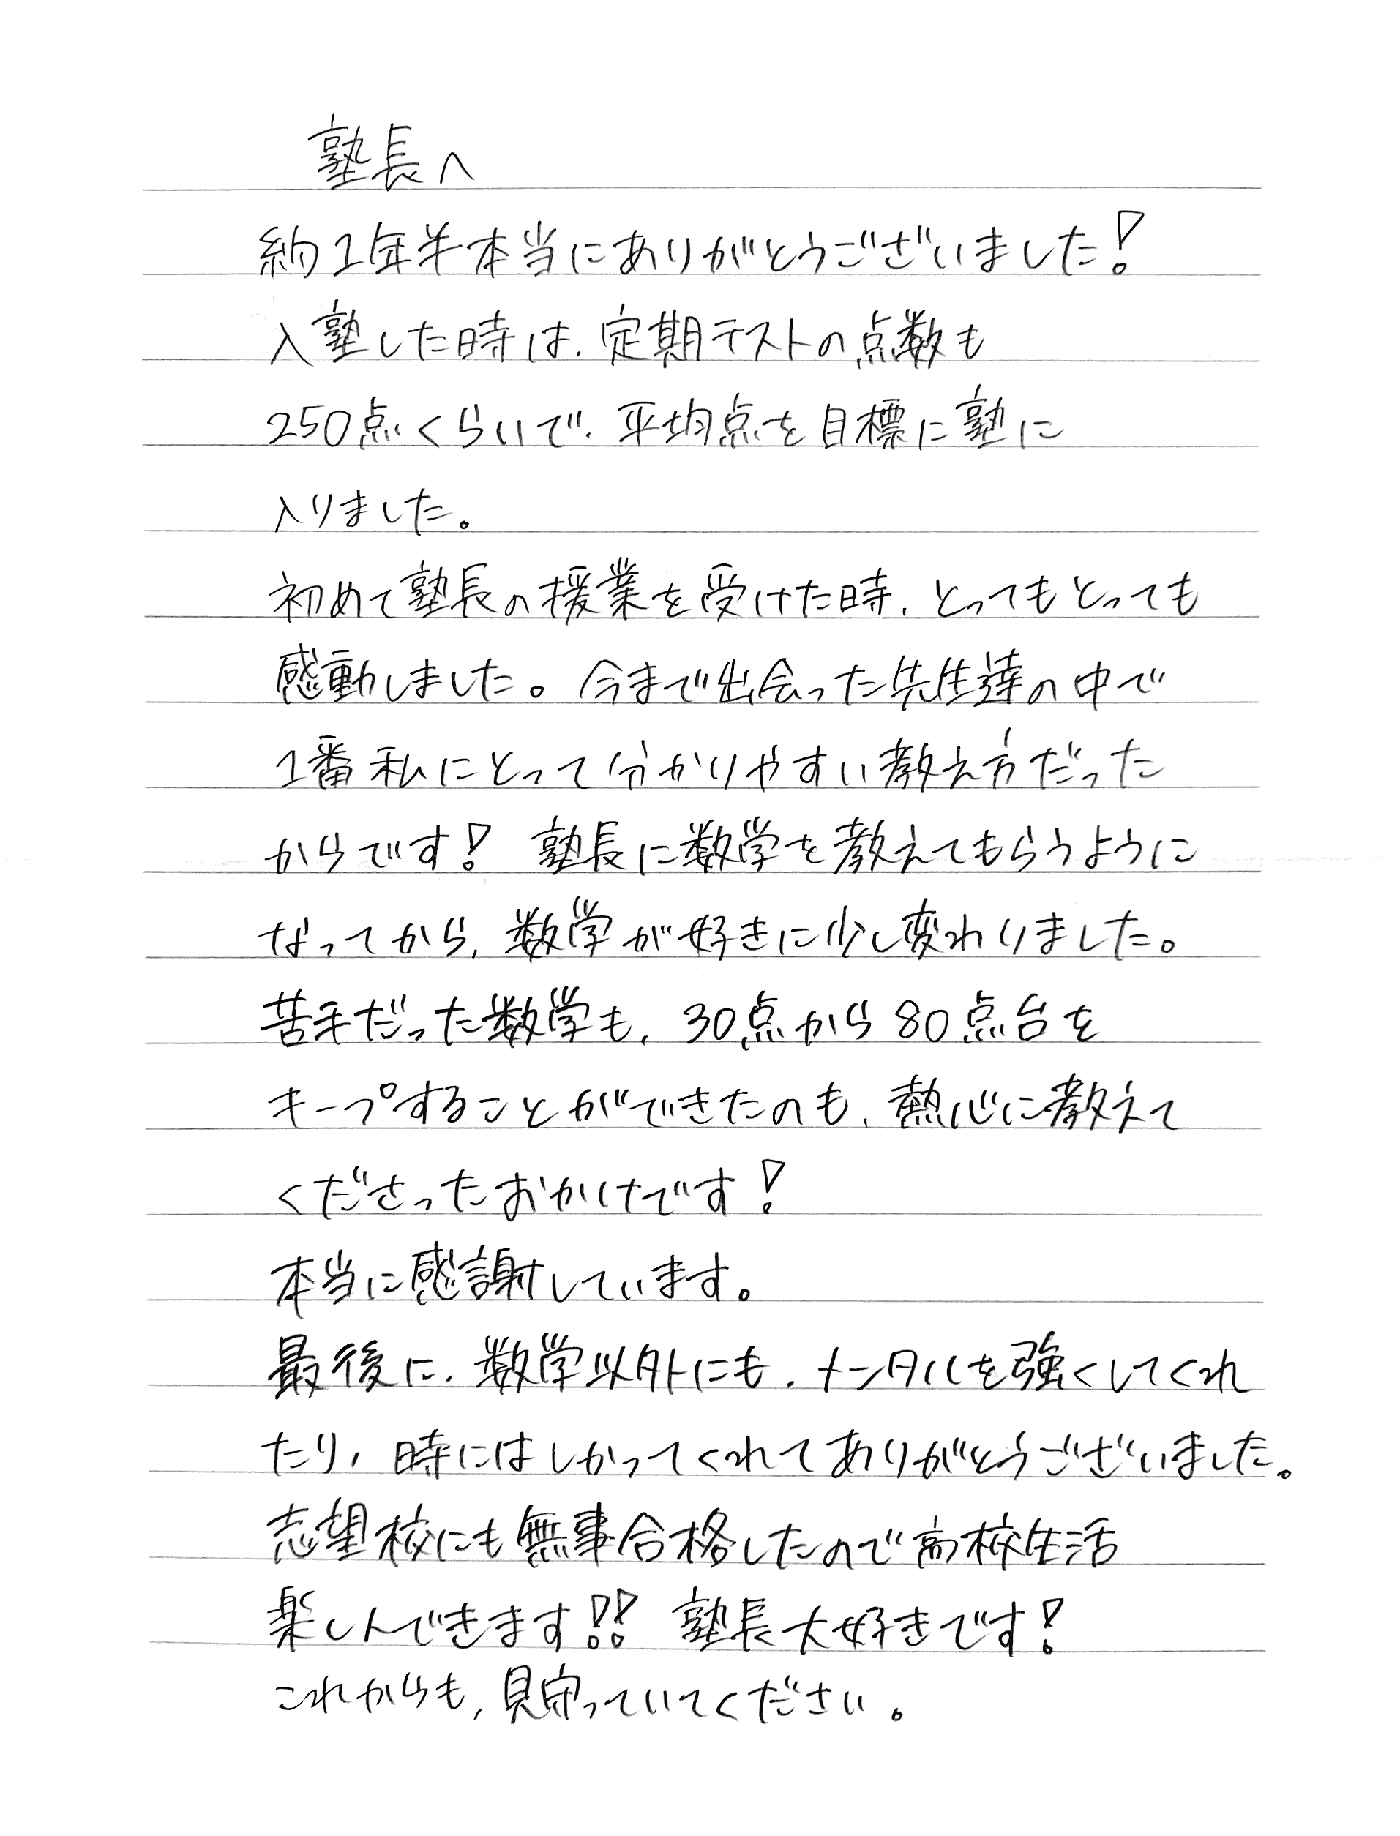 塾長へ
約1年半本当にありがとうございました!
入塾した時は、定期テストの点数も
250点くらいで、平均点を目標に塾に
入りました。
初めて塾長の授業を受けた時、とってもとっても
感動しました。今まで出会った先生達の中で
1番私にとって分かりやすい教え方だった
からです! 塾長に数学を教えてもらうように
なってから、数学が好きに少し変わりました。
苦手だった数学も、30点から80点台を
キープすることができたのも、熱心に教えて
くださったおかげです!
本当に感謝しています。
最後に、数学以外にも、メンタルを強くしてくれ
たり、時にはしかってくれてありがとうございました。
志望校にも無事合格したので高校生活
楽しんできます!! 塾長大好きです!
これからも、見守っていてください。